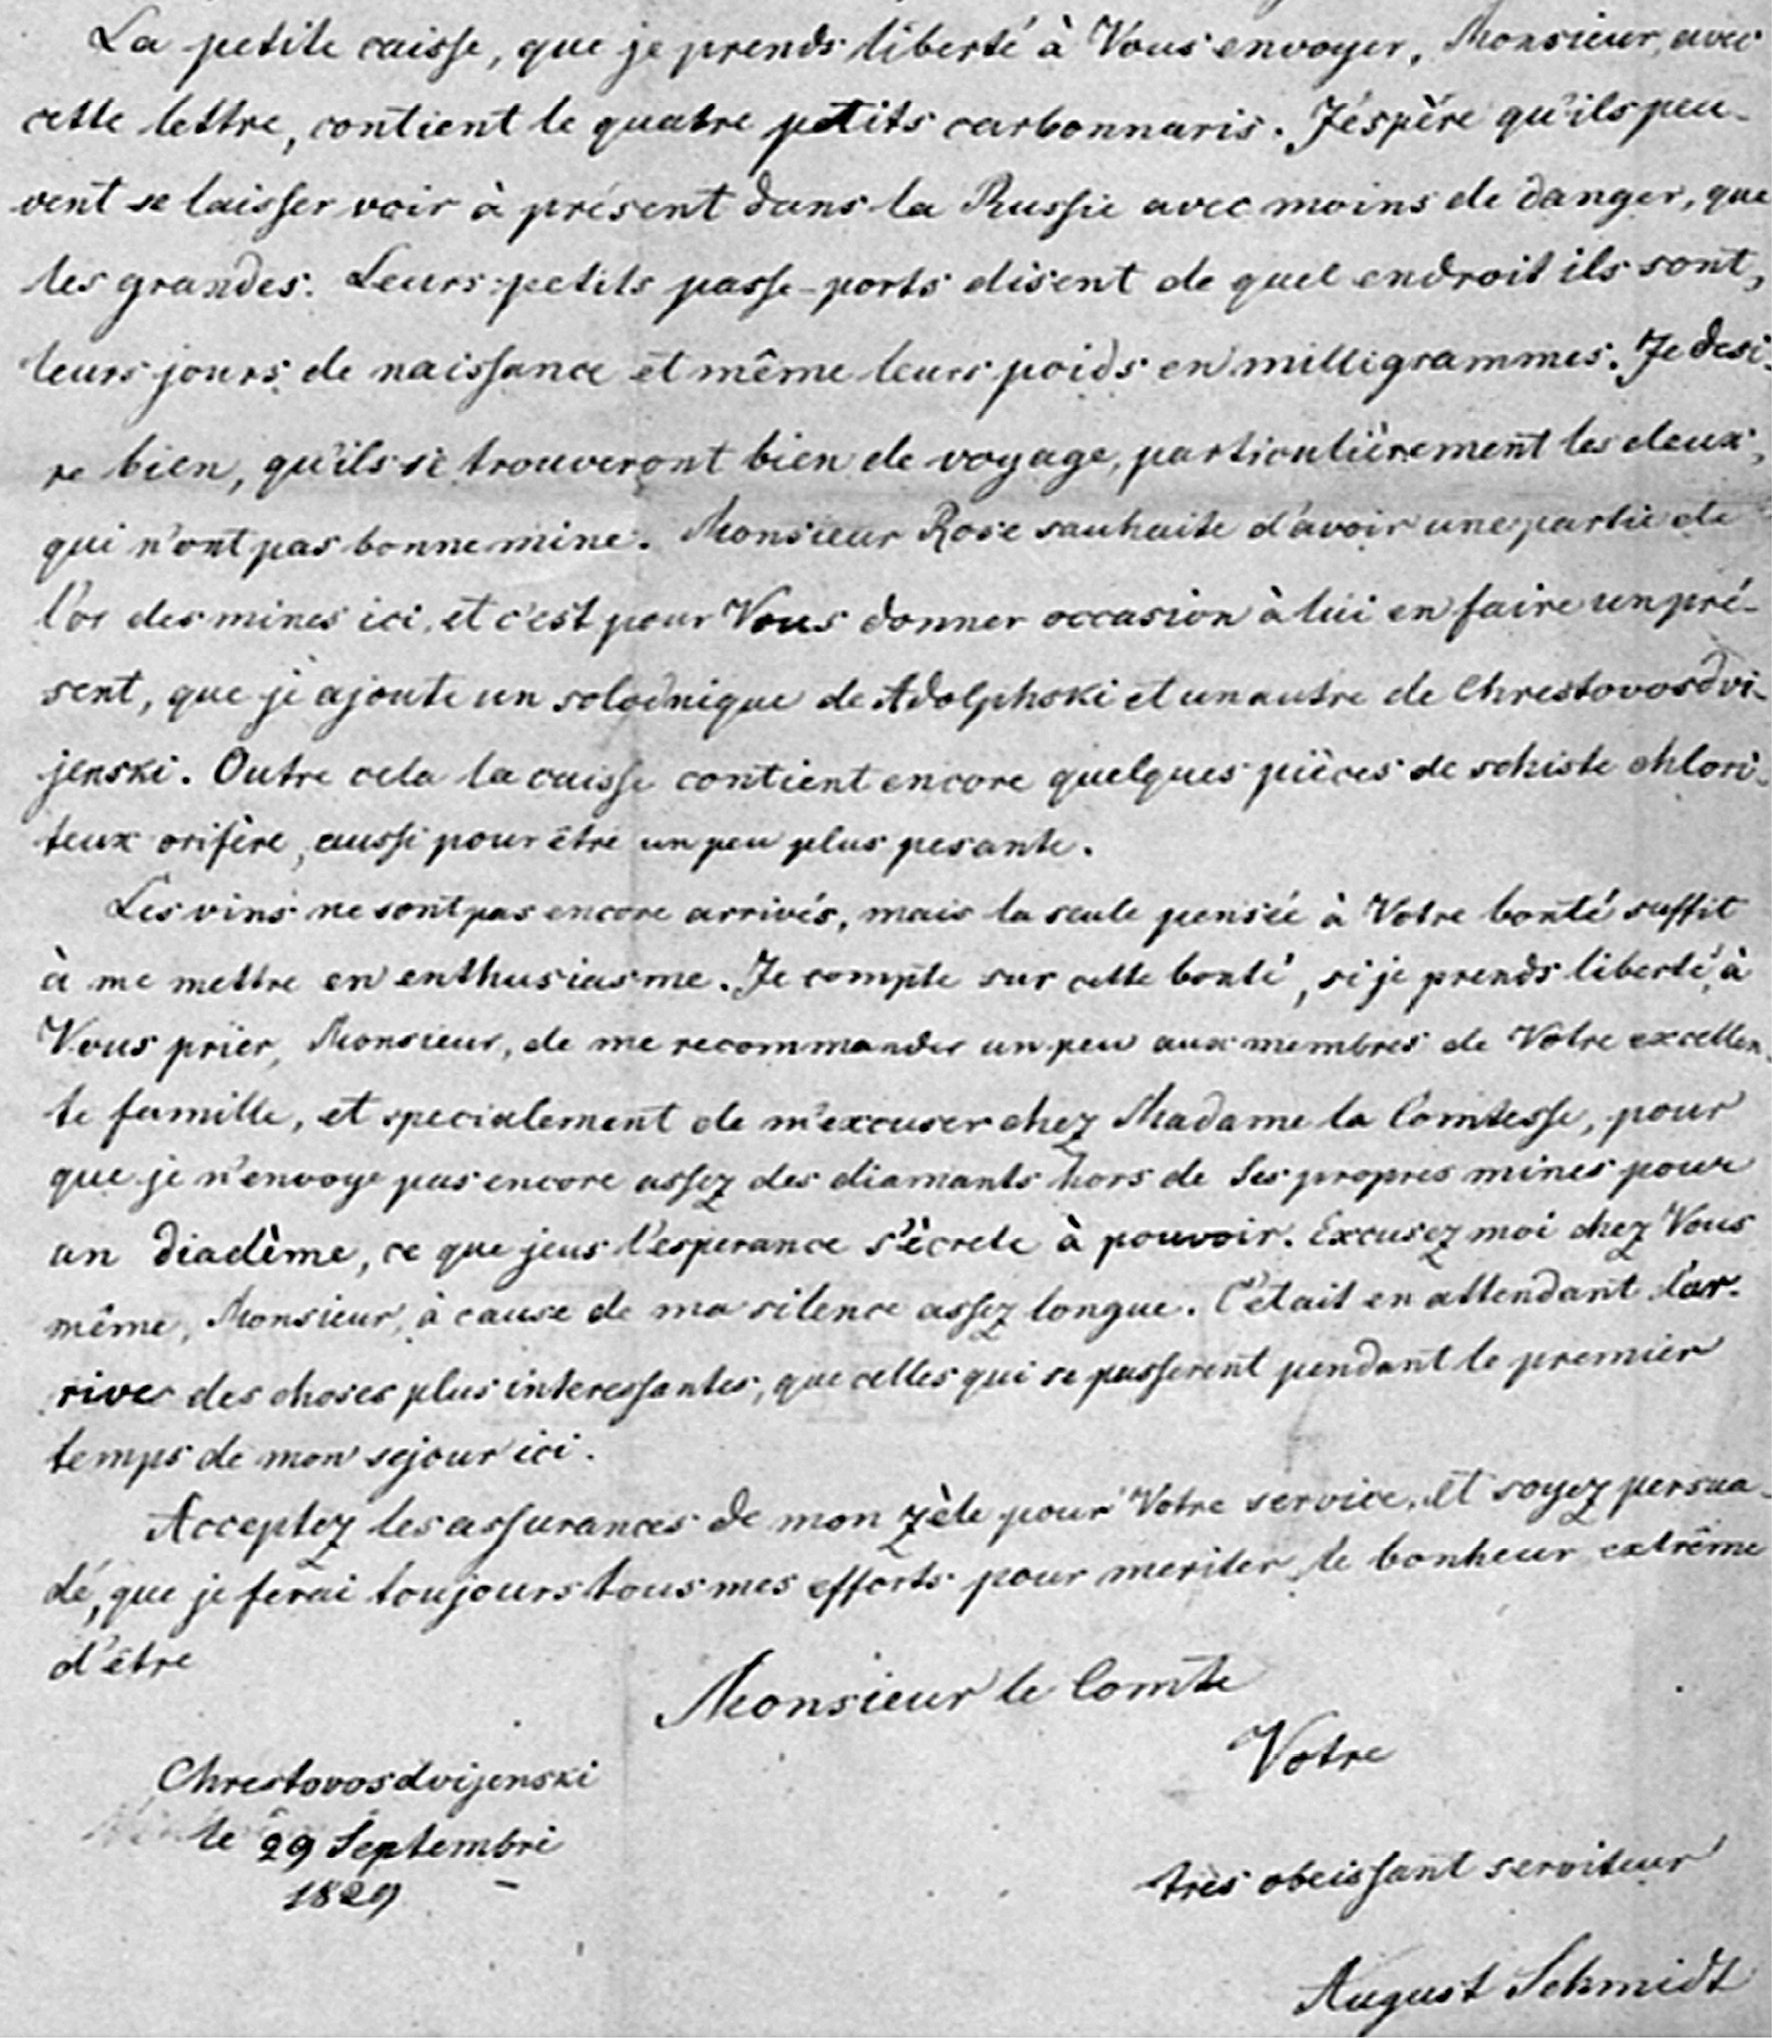 La petite caisse, que je prends liberté à Vous envoyer, Monsieur, avec
cette lettre, contient le quatre petits carbonnaris. J'éspère qu'ils peu-
vent se laisser voir à présent dans la Russie avec moins de danger, que
les grandes. Leurs petits passe-ports disent de quel endroit ils sont,
leurs jours de naissance et même leurs poids en milligrammes. Je desi-
re bien, qu'ils se trouveront bien de voyage, particulièrement les deux,
qui n'ont pas bonne mine. Monsieur Rose sauhaite d'avoir une partie de
l'or des mines ici, et c'est pour Vous donner occasion à lui en faire un pré-
sent, que je ajoute un solodnique de Adolphski et un autre de Chrestovosdvi-
jenski. Outre cela la caisse contient encore quelques pièces de schiste chlori-
teux orifère, aussi pour être un peu plus pesante.
Les vins ne sont pas encore arrivés, mais la seule pensée à Votre bonté suffit
à me mettre en enthusiasme. Je compte sur cette bonté, si je prends liberté à
Vous prier, Monsieur, de me recommander un peu aux membres de Votre excellen-
te famille, et specialement de m'excuser chez Madame la Comtesse, pour
que je n'envoye pas encore assez des diamants hors de Ses propres mines pour
un diadème, ce que jeus l'esperance s'ècrete à pouvoir. Excusez moi chez Vous
même, Monsieur, à cause de ma silence assez longue. C'était en attendant l'ar-
river des choses plus interessantes, que celles qui se passerent pendant le premier
temps de mon sejour ici.
Acceptez les assurances de mon zèle pour Votre service, et soyez persua-
dé, que je ferai toujours tous mes efforts pour meriter le bonheur extrême
d'être
Monsieur le Comte
Votre
Chrestovosdvijenski
le 29 Septembre
1829
très obeissant serviteur
August Schmidt